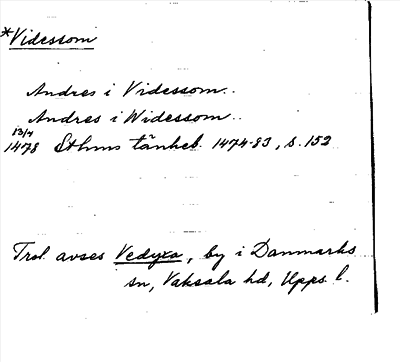 *Videssom
Andres i Videssom..
Andres i Widessom..
13/4
1478 Sthms tänkeb. 1474-83, s. 152
Trol. avses Vedyxa, by i Danmarks
sn, Vaksala hd, Upps. l.